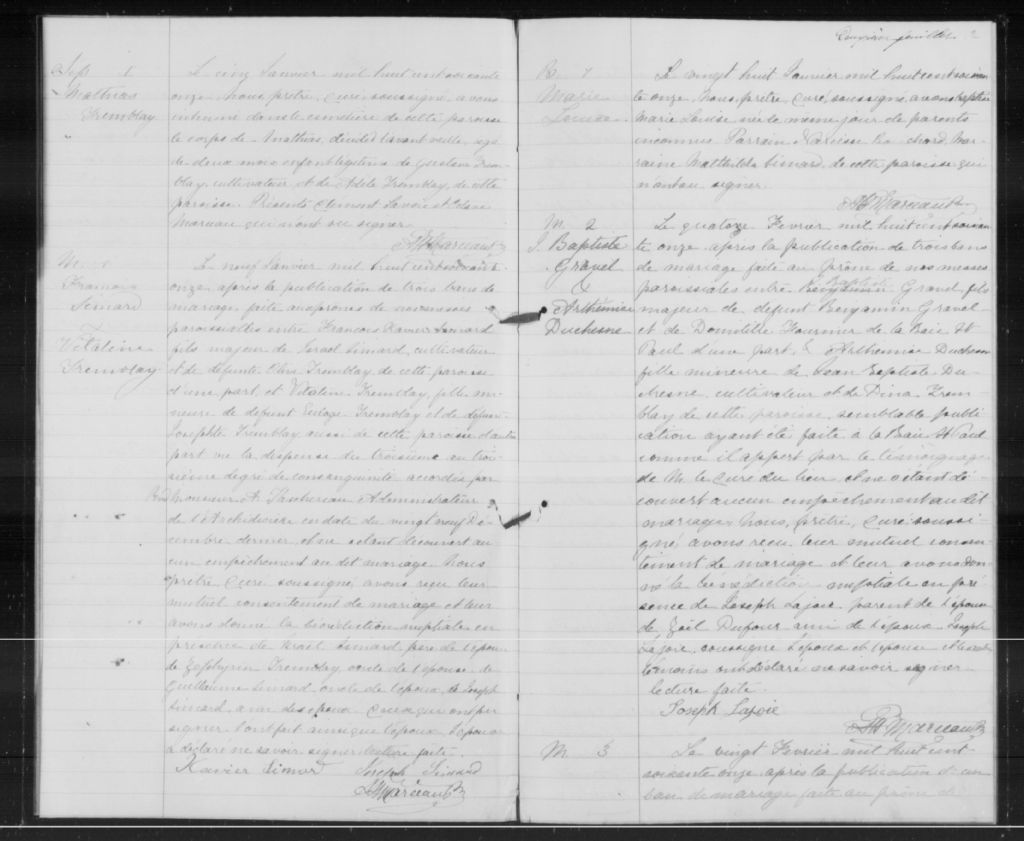 Sép 1
Mathias
Tremblay
Le cinq Janvier mil huit cent soixante
onze, nous prêtre, curé, soussigné, avons
inhumé dans le cimetière de cette paroisse
le corps de Mathias, décédé l'avant veille, agé
de deux mois enfant légitime de Gustave Trem-
blay, cultivateur et de Adèle Tremblay, de cette
paroisse. Présents Clément Lavoie et
Maruau qui n'ont su signer.
M. 1
François
Simard
Vitaline
Tremblay
Le neuf Janvier mil huit cent soixante
onze, après la publication de trois bans de
mariage faite aux prônes de nos messes
paroissiales entre François Xavier Simard
fils majeur de Israel Simard, cultivateur
et de défunte Tremblay de cette paroisse
d'une part, et Vitaline Tremblay, fille mi-
neure de défunt Euloge Tremblay et de défunte
Josephte Tremblay aussi de cette paroisse d'autre
part vu la dispense du troisième au troi-
sième degré de consanguinité accordée par
Monsieur A. Administrateur
de l'Archidiocèse en date du vingt neuf Dé-
cembre dernier, et ne s'étant découvert au-
cun empêchement au dit mariage Nous
prêtre Curé soussigné avons reçu leur
mutuel consentement de mariage et leur
avons donné la bénédiction nuptiale en
présence de Israel Simard, père de l'époux
de Zéphyrin Tremblay, oncle de l'épouse, de
Guillaume Simard oncle de l'époux, de Joseph
Simard, ami des époux. Ceux qui ont pu
signer l'ont fait ainsi que l'époux, l'épouse
a déclaré ne savoir signer, lecture faite.
Xavier Simard Joseph Simard
feuillet 2
B. 1
Marie
Louise
Le vingt huit Janvier mil huit cent soixan-
te onze, Nous, prêtre, Curé, soussigné, avons baptisé
Marie Louise née le même jour de parents
inconnus. Parrain Narcisse Mar-
raine Mathilde Simard, de cette paroisse qui
n'ont su signer.
M. 2
J. Baptiste
Gravel
&
Arthémise
Duchesne
Le quatorze Février mil huit cent soixan-
te onze, après la publication de trois bans
de mariage faite au prône de nos messes
paroissiales entre Baptiste Gravel fils
majeur de défunt Benjamin Gravel
et de Domitile Fournier de la Baie St
Paul d'une part, & Arthémise Duchesne
fille mineure de Jean Baptiste Du-
chesne, cultivateur et de Dina Trem-
blay de cette paroisse, semblable publi-
cation ayant été faite à la Baie St Paul
comme il appert par le témoignage
de M. le Curé du lieu et ne s'étant dé-
couvert aucun empêchement au dit
mariage Nous, prêtre, Curé soussi-
gné avons reçu leur mutuel consen-
tement de mariage et leur avons don-
né la bénédiction nuptiale en pré-
sence de Joseph Lajoie, parent de l'épouse
de Zoël Dufour ami de l'époux. Joseph
Lajoie, soussigné l'époux et l'épouse et
témoins ont déclaré ne savoir signer
lecture faite.
Joseph Lajoie
M. 3
Le vingt Février mil huit cent
soixante onze, après la publication d'un
ban de mariage faite au prône de